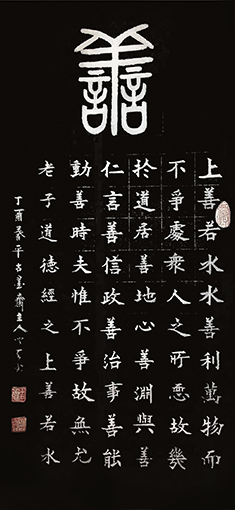 善
上善若水水善利萬物而
不爭處衆人之所惡故幾
扵道居善地心善淵與善
仁言善信政善治事善能
動善時夫惟不爭故無尤
老子道德經之上善若水
丁酉春平古墨齋主人